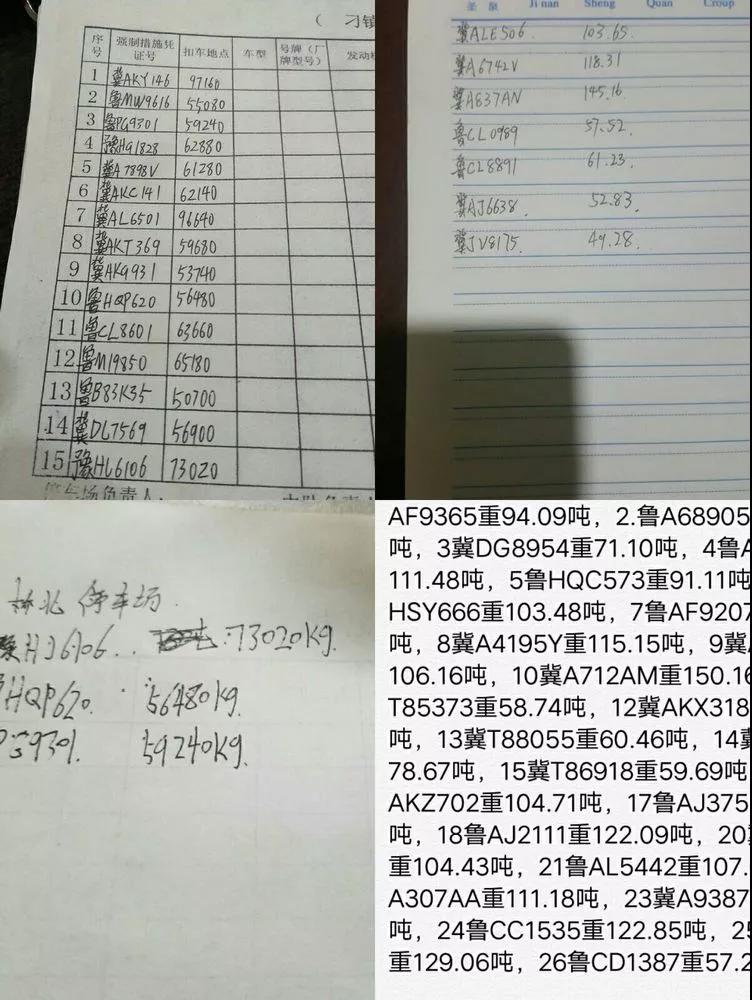 （ 刁镇
序号 强制措施凭证号 扣车地点 车型 号牌（厂牌型号） 发动
1 冀AKY146 97160
2 鲁MW9616 55080
3 鲁PG9301 59240
4 豫HG1828 62880
5 冀A7898V 61280
6 冀AKC141 62140
7 冀AL6501 96640
8 冀AKT369 59680
9 冀AK9931 53740
10 鲁HQP620 56480
11 鲁CL8601 63660
12 鲁M19850 65180
13 鲁B83K35 50700
14 冀DL7569 56900
15 豫HL6106 73020
停车场负责人：
圣 泉 Ji nan Sheng Quan Croup
冀ALE506. 103.65.
冀A6742V 118.31
冀A837AN 145.16
鲁CL0989 57.52.
鲁CL8891 61.23.
冀AJ6638. 52.83.
冀JV8175. 49.28.
北 停车场.
73020kg.
HQP620. 56480kg.
9301. 59240kg.
AF9365重94.09吨，2.鲁A68905
吨，3冀DG8954重71.10吨，4鲁A
111.48吨，5鲁HQC573重91.11吨
HSY666重103.48吨，7鲁AF9207
吨，8冀A4195Y重115.15吨，9冀
106.16吨，10冀A712AM重150.16
T85373重58.74吨，12冀AKX318
吨，13冀T88055重60.46吨，14冀
78.67吨，15冀T86918重59.69吨
AKZ702重104.71吨，17鲁AJ375
吨，18鲁AJ2111重122.09吨，20
重104.43吨，21鲁AL5442重107.
A307AA重111.18吨，23冀A9387
吨，24鲁CC1535重122.85吨，25
重129.06吨，26鲁CD1387重57.2